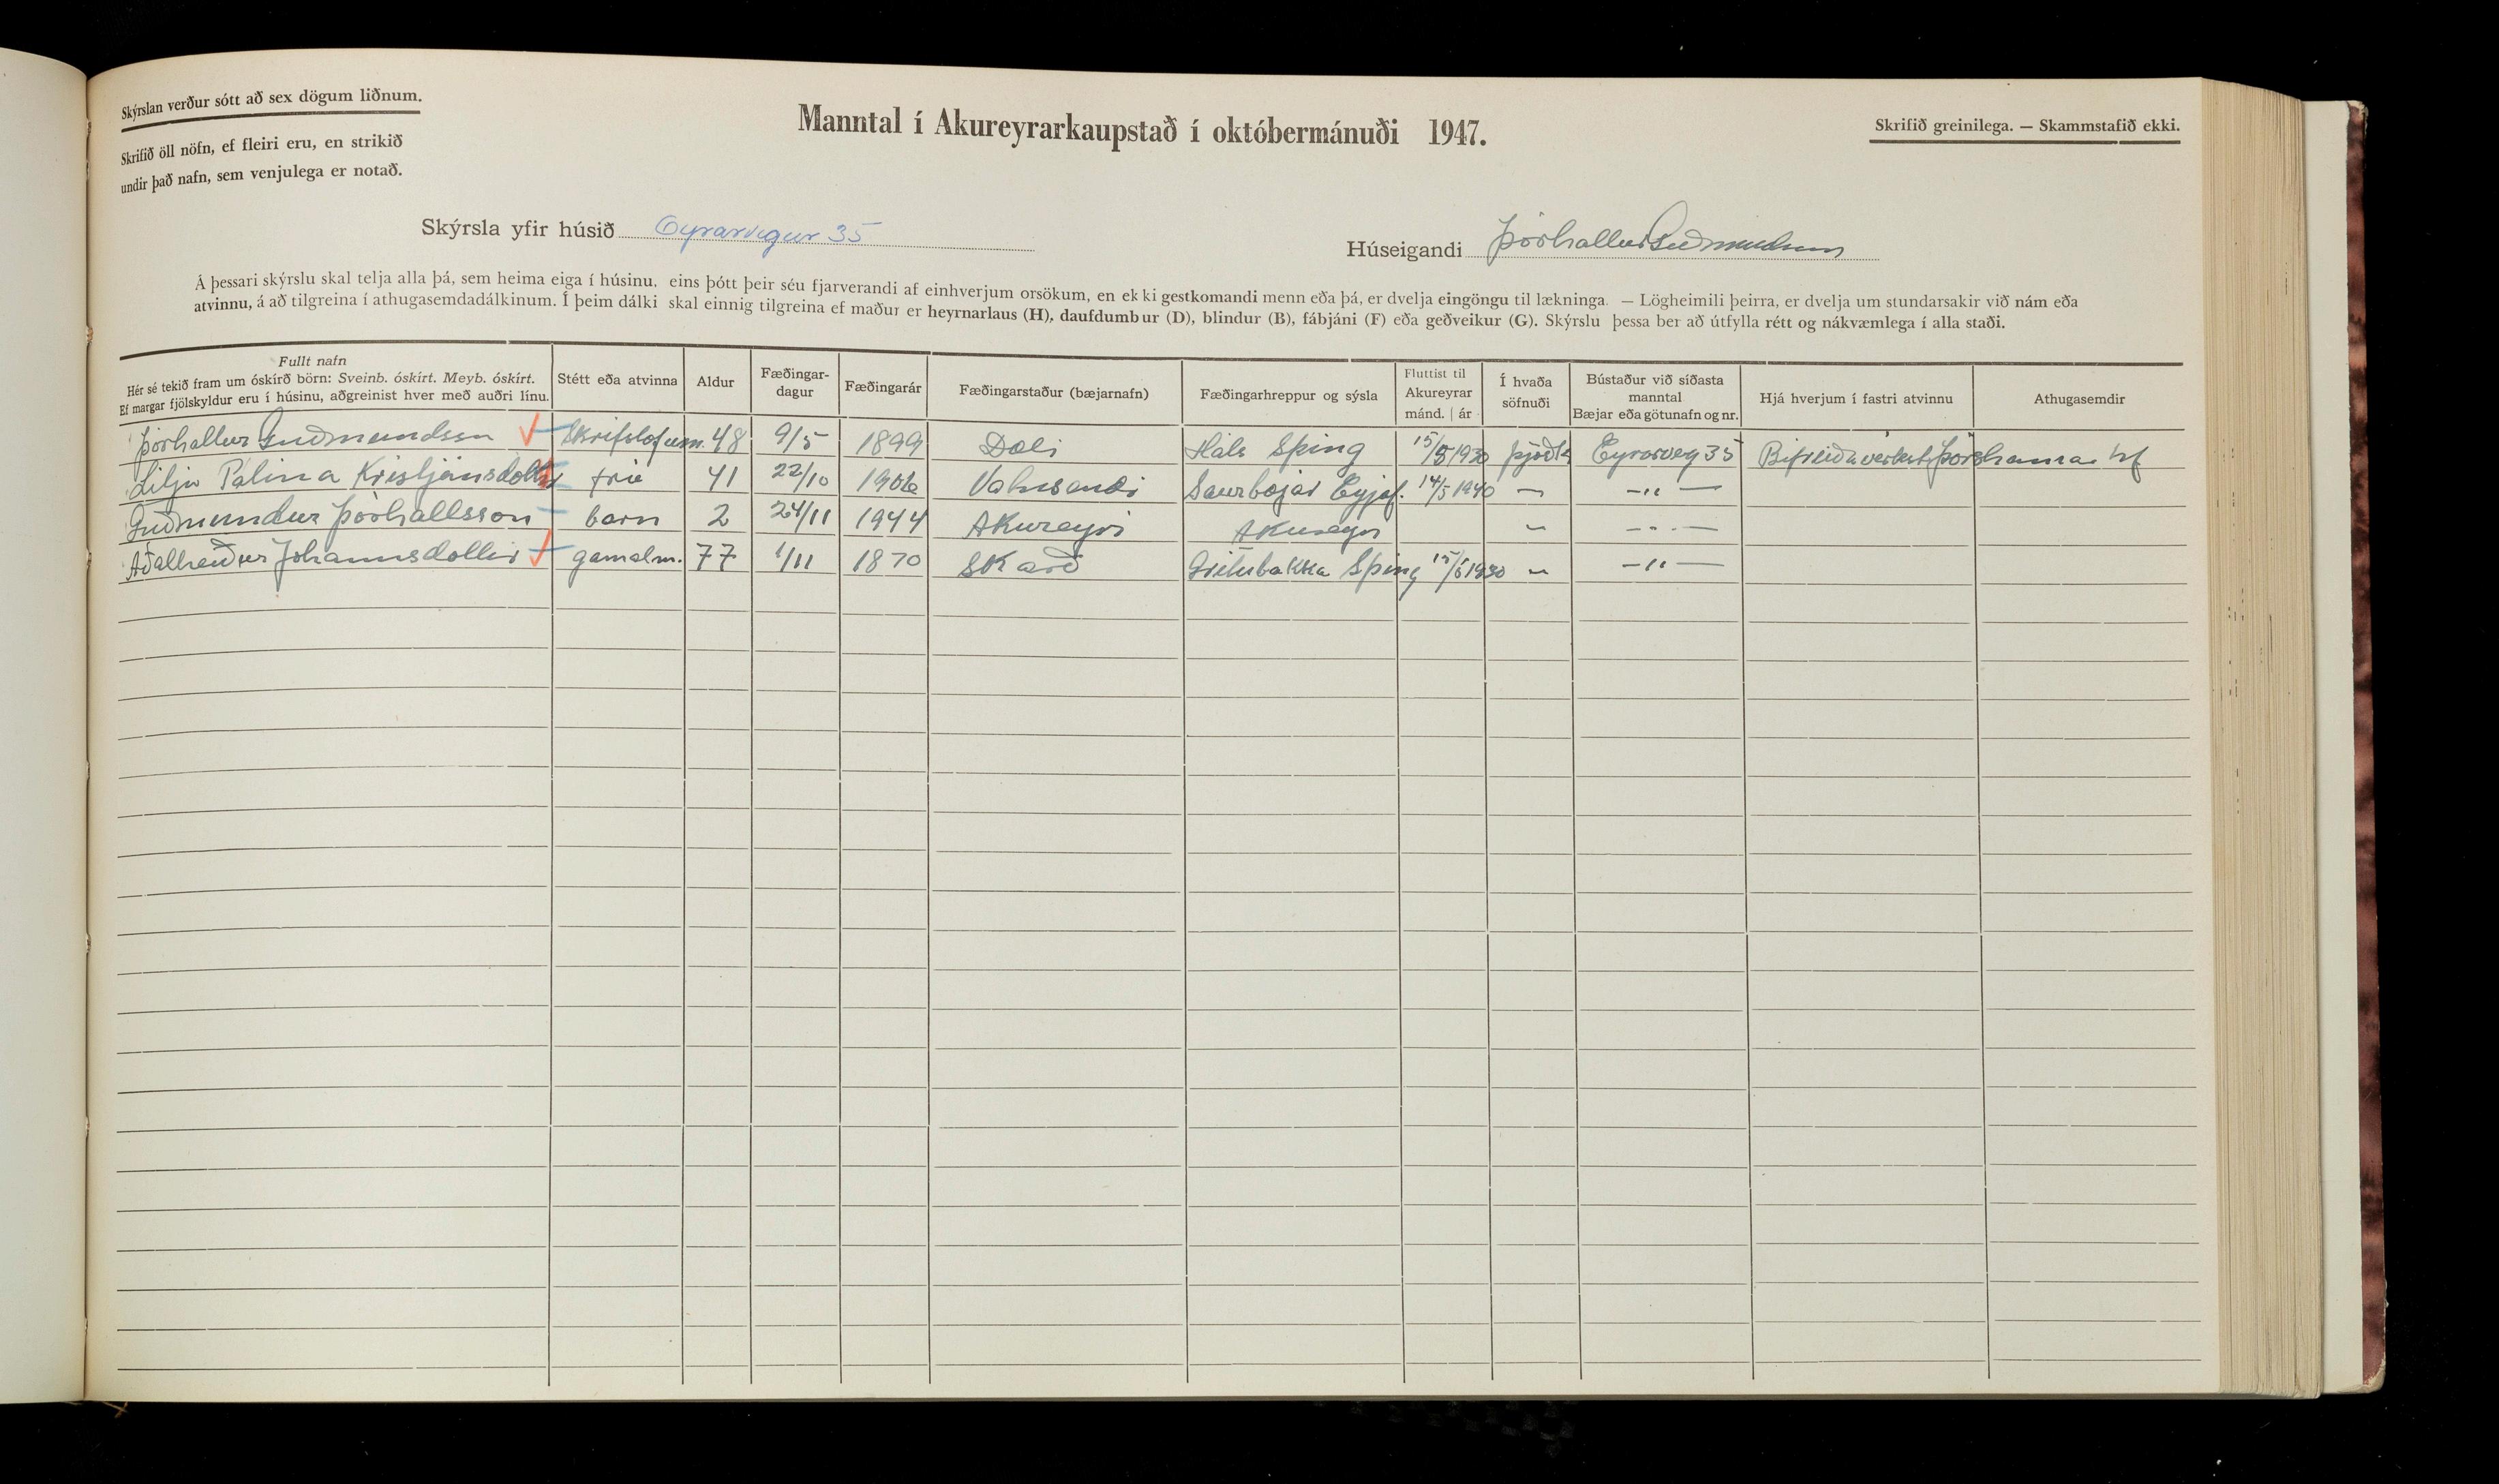 Skýrslan verður sótt að sex dögum liðnum.
Skrifið öll nöfn, ef fleiri eru, en strikið
undir það nafn, sem venjulega er notað.
Manntal í Akureyrarkaupstað í októbermánuði 1947.
Skrifið greinilega. — Skammstafið ekki.
Skýrsla yfir húsið Eyrarvegur 35
Húseigandi Þórhallur Guðmundsson
Á þessari skýrslu skal telja alla þá, sem heima eiga í húsinu, eins þótt þeir séu fjarverandi af einhverjum orsökum, en ekki gestkomandi menn eða þá, er dvelja eingöngu til lækninga. — Lögheimili þeirra, er dvelja um stundarsakir við nám eða
atvinnu, á að tilgreina í athugasemdadálkinum. Í þeim dálki skal einnig tilgreina ef maður er heyrnarlaus (H), daufdumbur (D), blindur (B), fábjáni (F) eða geðveikur (G). Skýrslu þessa ber að útfylla rétt og nákvæmlega í alla staði.
Fullt nafn
Hér sé tekið fram um óskírð börn: Sveinb. óskírt. Meyb. óskírt.
Ef margar fjölskyldur eru í húsinu, aðgreinist hver með auðri línu.
Stétt eða atvinna
Aldur
Fæðingar-
dagur
Fæðingarár
Fæðingarstaður (bæjarnafn)
Fæðingarhreppur og sýsla
Fluttist til
Akureyrar
mánd. | ár
Í hvaða
söfnuði
Bústaður við síðasta
manntal
Bæjar eða götunafn og nr.
Hjá hverjum í fastri atvinnu
Athugasemdir
Þórhallur Guðmundsson Skrifstofum. 48 9/5 1899 Dæli Háls Sþing 15/5 1930 Þjóðk Eyrarveg 35 Bifreiðaverkst Þórshamar hf
Lilja Pálína Kristjánsdóttir frú 41 22/10 1906 Saurbæjar Eyjaf. 14/5 1940 — —"—
Guðmundur Þórhallsson barn 2 24/11 1944 Akureyri Akureyri " —"—
Aðalheiður Jóhannsdóttir gamalm. 77 1/11 1870 Skarð Grítubakka Sþing 15/5 1930 " —"—